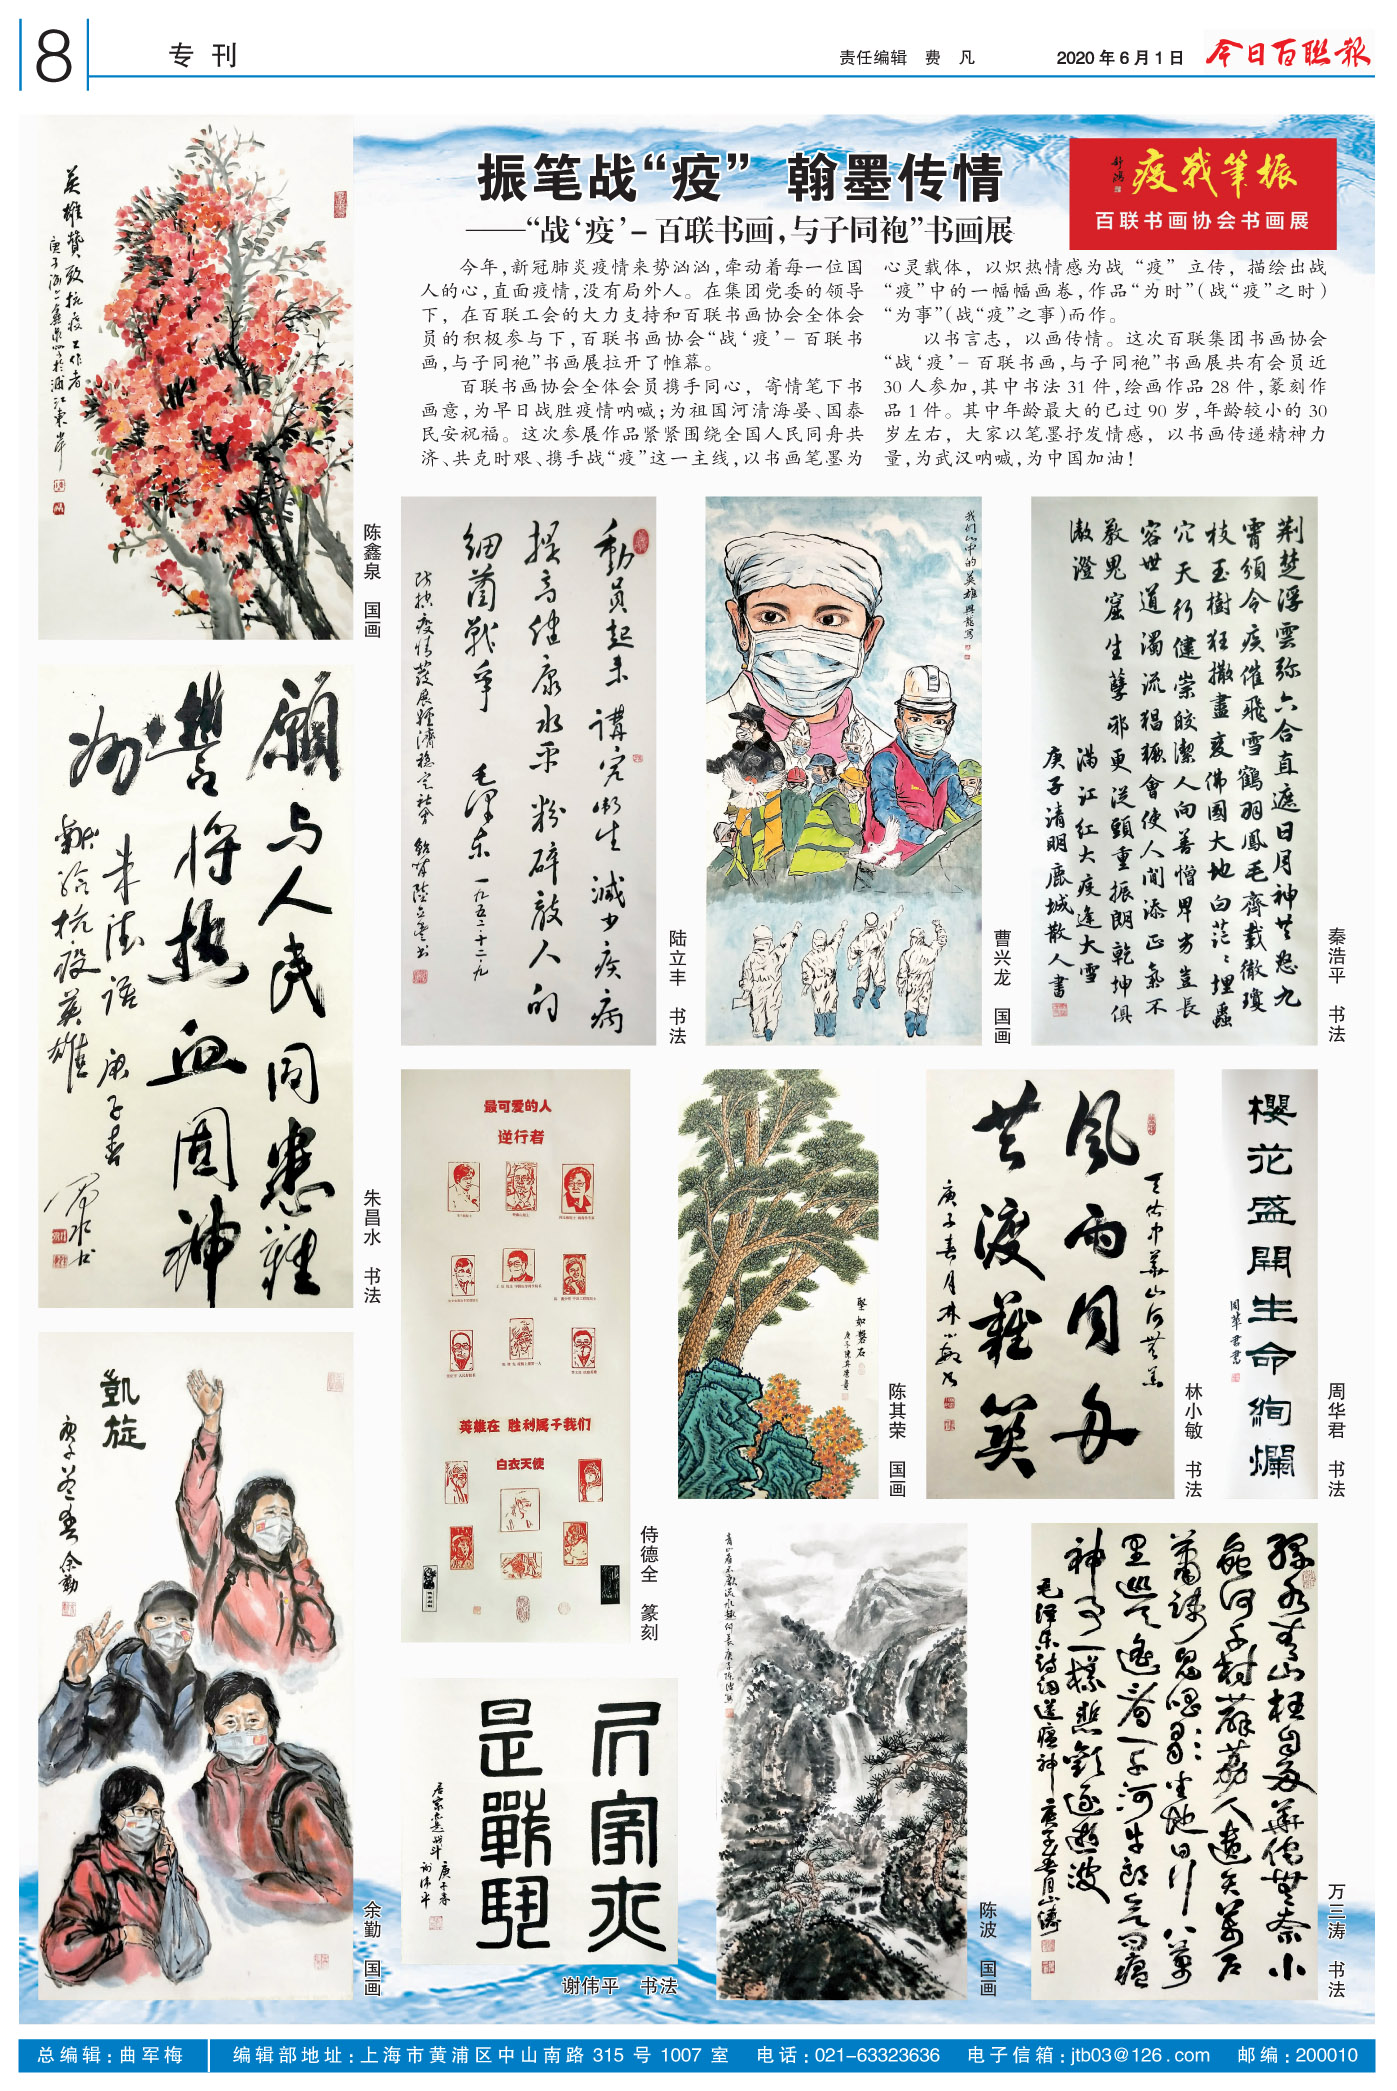 8
专 刊
责任编辑 费 凡
2020 年 6 月 1 日
今日百联报
振笔战“疫” 翰墨传情
——“战‘疫’－百联书画,与子同袍”书画展
振筆戰疫
百联书画协会书画展
今年,新冠肺炎疫情来势汹汹,牵动着每一位国
人的心,直面疫情,没有局外人。在集团党委的领导
下，在百联工会的大力支持和百联书画协会全体会
员的积极参与下,百联书画协会“战‘疫’－百联书
画,与子同袍”书画展拉开了帷幕。
百联书画协会全体会员携手同心，寄情笔下书
画意,为早日战胜疫情呐喊;为祖国河清海晏、国泰
民安祝福。这次参展作品紧紧围绕全国人民同舟共
济、共克时艰、携手战“疫”这一主线,以书画笔墨为
心灵载体，以炽热情感为战“疫”立传，描绘出战
“疫”中的一幅幅画卷,作品“为时”(战“疫”之时)
“为事”(战“疫”之事)而作。
以书言志，以画传情。这次百联集团书画协会
“战‘疫’－百联书画,与子同袍”书画展共有会员近
30 人参加,其中书法 31 件,绘画作品 28 件,篆刻作
品 1 件。其中年龄最大的已过 90 岁,年龄较小的 30
岁左右，大家以笔墨抒发情感，以书画传递精神力
量,为武汉呐喊,为中国加油!
英雄赞
陈鑫泉 国画
動員起来講究衛生減少疾病
提高健康水平粉碎敌人的
细菌戰争 毛泽东 一九五二十二九
陆立丰 书法
我们心中的英雄 興龍写
曹兴龙 国画
荆楚浮雲弥六合直遮日月神共怒九
霄頒令疾催飛雪鶴羽鳳毛齊截徹瓊
枝玉樹狂撒盡裹佛國大地白茫茫埋蟲
穴天行健崇皎潔人向善憎卑劣豈長
容世道濁流猖獗會使人间添正氣不
教鬼窟生孽邪更從頭重振朗乾坤俱
澈澄 满江红大疫逢大雪
庚子清明鹿城散人書
秦浩平 书法
願与人民同患難
誓将热血固神
州 朱德语 庚子春
献给抗疫英雄
朱昌水 书法
最可爱的人
逆行者
英雄在 胜利属于我们
白衣天使
侍德全 篆刻
坚如磐石
陈其荣 国画
天佑中華山河無恙
風雨同舟
共渡難關
庚子春月林小敏书
林小敏 书法
櫻花盛開生命絢爛
周華君書
周华君 书法
凱旋
庚子暮春余勤
余勤 国画
居家亦
是戰鬥
居家亦是战斗 庚子春
谢伟平
谢伟平 书法
青山看不厭流水趣何長
陈波 国画
绿水青山枉自多華佗無奈小
蟲何千村薜荔人遺矢萬户
蕭疏鬼唱歌坐地日行八萬
里巡天遥看一千河牛郎欲问瘟
神事一樣悲歡逐逝波
毛泽东诗词送瘟神 庚子春月三涛
万三涛 书法
总编辑:曲军梅
编辑部地址:上海市黄浦区中山南路 315 号 1007 室
电话:021-63323636
电子信箱:jtb03@126.com
邮编:200010